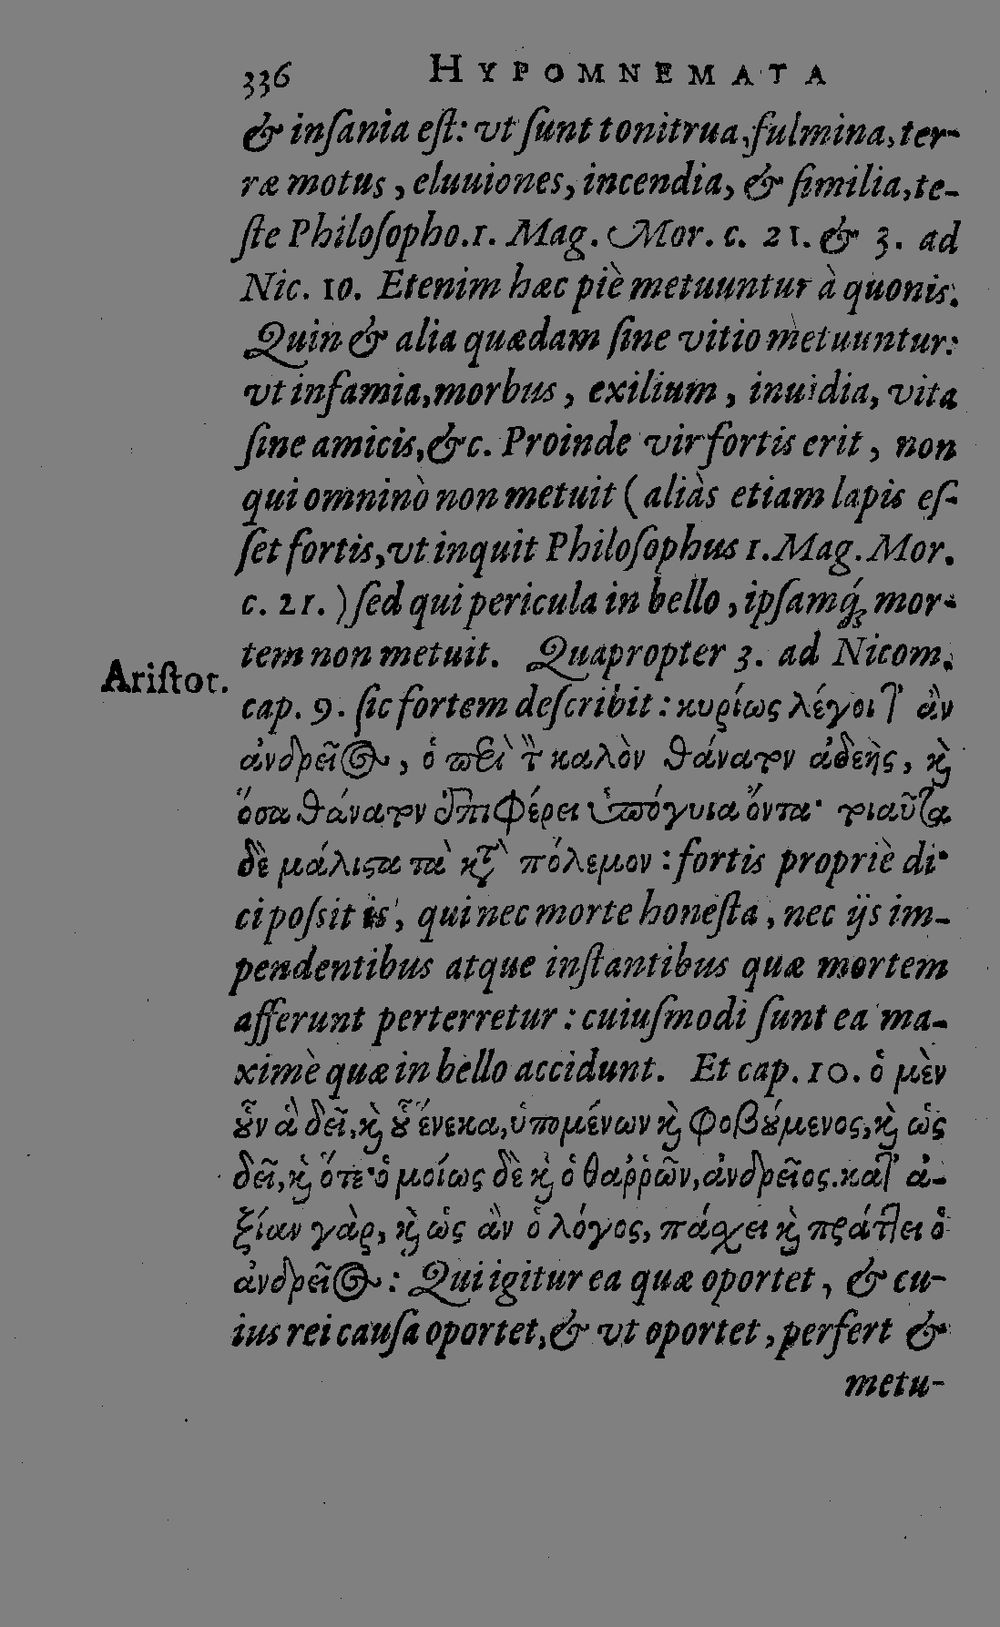 336 HYPOMNEMATA
& inſania eſt: vt ſunt tonitrua, fulmina, ter-
ræ motus, eluuiones, incendia, & ſimilia, te-
ſte Philoſopho. 1. Mag. Mor. c. 21. & 3. ad
Nic. 10. Etenim hæc piè metuuntur à quonis.
Quin & alia quædam ſine vitio metuuntur:
vt infamia, morbus, exilium, inuidia, vita
ſine amicis, &c. Proinde vir fortis erit, non
qui omninò non metuit (aliàs etiam lapis eſ-
ſet fortis, vt inquit Philoſophus 1. Mag. Mor.
c. 21.) ſed qui pericula in bello, ipſamq́; mor-
tem non metuit. Quapropter 3. ad Nicom.
Ariſtot.
cap. 9. ſic fortem deſcribit: κυρίως λέγοιτ' ἂν
ἀνδρεῖος, ὁ περὶ τὸν καλὸν θάνατον ἀδεὴς, καὶ
ὅσα θάνατον ἐπιφέρει ὑπόγυια ὄντα· τοιαῦτα
δὲ μάλιστα τὰ κατὰ πόλεμον: fortis propriè di-
ci poſsit is, qui nec morte honeſta, nec ijs im-
pendentibus atque inſtantibus quæ mortem
afferunt perterretur: cuiuſmodi ſunt ea ma-
ximè quæ in bello accidunt. Et cap. 10. ὁ μὲν
οὖν ἃ δεῖ, καὶ οὗ ἕνεκα, ὑπομένων καὶ φοβούμενος, καὶ ὡς
δεῖ, καὶ ὅτε· ὁμοίως δὲ καὶ ὁ θαῤῥῶν, ἀνδρεῖος. κατ' ἀ-
ξίαν γὰρ, καὶ ὡς ἂν ὁ λόγος, πάσχει καὶ πράττει ὁ
ἀνδρεῖος: Qui igitur ea quæ oportet, & cu-
ius rei cauſa oportet, & vt oportet, perfert &
metu-